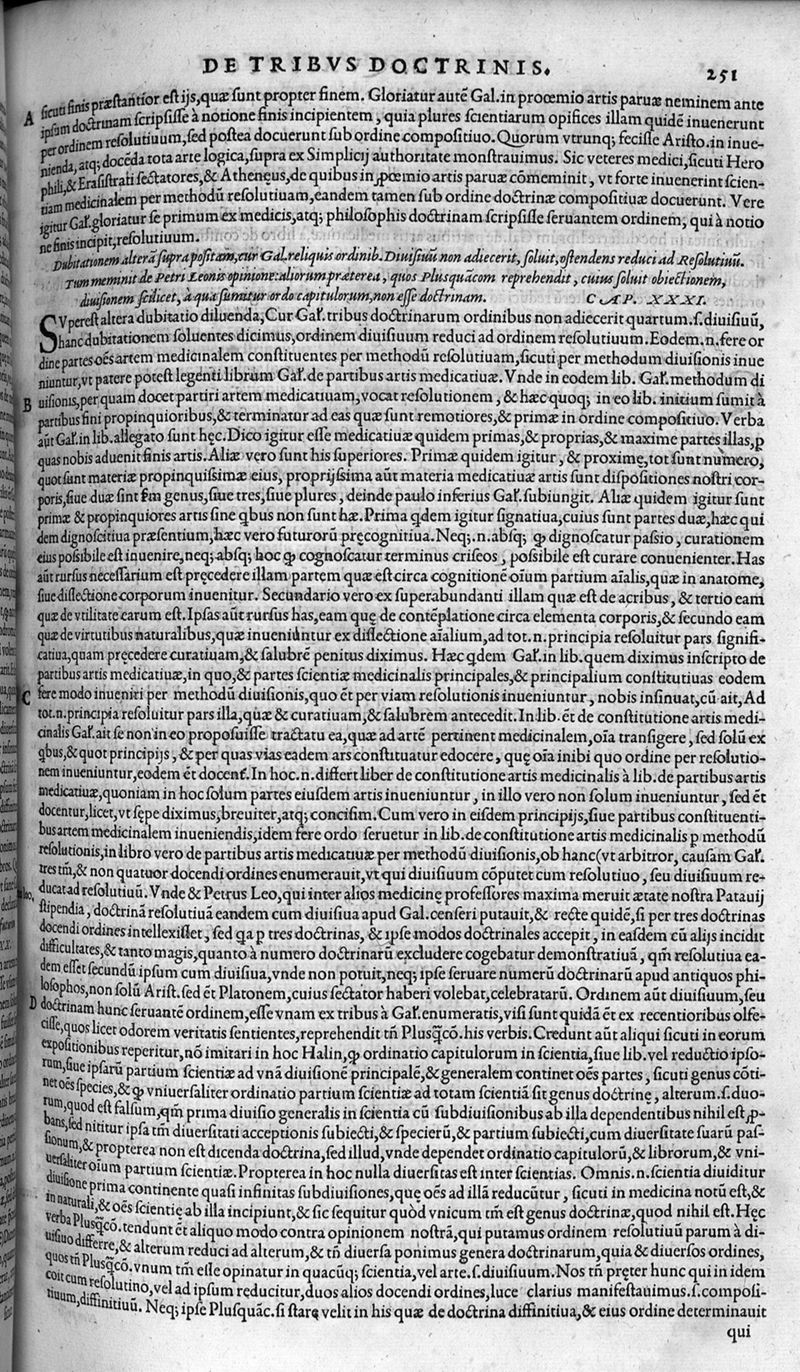 DE TRIBVS DOCTRINIS.
251
A sicuti finis præstantior est ijs, quæ sunt propter finem. Gloriatur autē Gal. in proœmio artis paruæ neminem ante
ipsum doctrinam scripsisse à notione finis incipientem, quia plures scientiarum opifices illam quidē inuenerunt
per ordinem resolutiuum, sed postea docuerunt sub ordine compositiuo. Quorum vtrunq; fecisse Aristo. in inue-
nienda, atq; docēda tota arte logica, supra ex Simplicij authoritate monstrauimus. Sic veteres medici, sicuti Hero
phili, & Erasistrati sectatores, & Athenęus, de quibus in proœmio artis paruæ cōmeminit, vt forte inuenerint scien-
tiam medicinalem per methodū resolutiuam, eandem tamen sub ordine doctrinæ compositiuæ docuerunt. Vere
igitur Gal. gloriatur se primum ex medicis, atq; philosophis doctrinam scripsisse seruantem ordinem, qui à notio
ne finis incipit, resolutiuum.
Dubitationem alterā supra positam, cur Gal. reliquis ordinib. Diuisiuū non adiecerit, soluit, ostendens reduci ad Resolutiuū.
Tum meminit de Petri Leonis opinione: aliorum præterea, quos Plusquācom reprehendit, cuius soluit obiectionem,
diuisionem scilicet, à qua sumitur ordo capitulorum, non esse doctrinam. CAP. XXXI.
SVperest altera dubitatio diluenda, Cur Gal. tribus doctrinarum ordinibus non adiecerit quartum. s. diuisiuū,
hanc dubitationem soluentes dicimus, ordinem diuisiuum reduci ad ordinem resolutiuum. Eodem .n. fere or
dine partes oēs artem medicinalem constituentes per methodū resolutiuam, sicuti per methodum diuisionis inue
niuntur, vt patere potest legenti librum Gal. de partibus artis medicatiuæ. Vnde in eodem lib. Gal. methodum di
B uisionis, per quam docet partiri artem medicatiuam, vocat resolutionem, & hæc quoq; in eo lib. initium sumit à
partibus fini propinquioribus, & terminatur ad eas quæ sunt remotiores, & primæ in ordine compositiuo. Verba
aūt Gal. in lib. allegato sunt hęc. Dico igitur esse medicatiuæ quidem primas, & proprias, & maxime partes illas, p
quas nobis aduenit finis artis. Aliæ vero sunt his superiores. Primæ quidem igitur, & proximę, tot sunt numero,
quot sunt materiæ propinquissimæ eius, proprijssima aūt materia medicatiuæ artis sunt dispositiones nostri cor-
poris, siue duæ sint fm genus, siue tres, siue plures, deinde paulo inferius Gal. subiungit. Aliæ quidem igitur sunt
primæ & propinquiores artis sine qbus non sunt hæ. Prima qdem igitur signatiua, cuius sunt partes duæ, hæc qui
dem dignoscitiua præsentium, hæc vero futurorū pręcognitiua. Neq; .n. absq; ꝙ dignoscatur passio, curationem
eius possibile est inuenire, neq; absq; hoc ꝙ cognoscatur terminus criseos, possibile est curare conuenienter. Has
aūt rursus necessarium est pręcedere illam partem quæ est circa cognitionē oīum partium aīalis, quæ in anatome,
siue dissectione corporum inuenitur. Secundario vero ex superabundanti illam quæ est de acribus, & tertio eam
quæ de vtilitate earum est. Ipsas aūt rursus has, eam quę de contēplatione circa elementa corporis, & secundo eam
quæ de virtutibus naturalibus, quæ inueniuntur ex dissectione aīalium, ad tot .n. principia resoluitur pars signifi-
catiua, quam pręcedere curatiuam, & salubrē penitus diximus. Hæc qdem Gal. in lib. quem diximus inscripto de
partibus artis medicatiuæ, in quo, & partes scientiæ medicinalis principales, & principalium constitutiuas eodem
C fere modo inueniri per methodū diuisionis, quo ēt per viam resolutionis inueniuntur, nobis insinuat, cū ait, Ad
tot .n. principia resoluitur pars illa, quæ & curatiuam, & salubrem antecedit. In lib. ēt de constitutione artis medi-
cinalis Gal. ait se non in eo proposuisse tractatu ea, quæ ad artē pertinent medicinalem, oīa transigere, sed solū ex
qbus, & quot principijs, & per quas vias eadem ars constituatur edocere, quę oīa inibi quo ordine per resolutio-
nem inueniuntur, eodem ēt docent. In hoc .n. differt liber de constitutione artis medicinalis à lib. de partibus artis
medicatiuæ, quoniam in hoc solum partes eiusdem artis inueniuntur, in illo vero non solum inueniuntur, sed ēt
docentur, licet, vt sępe diximus, breuiter, atq; concisim. Cum vero in eisdem principijs, siue partibus constituenti-
bus artem medicinalem inueniendis, idem fere ordo seruetur in lib. de constitutione artis medicinalis p methodū
resolutionis, in libro vero de partibus artis medicatiuæ per methodū diuisionis, ob hanc (vt arbitror, causam Gal.
tres tm̄, & non quatuor docendi ordines enumerauit, vt qui diuisiuum cōputet cum resolutiuo, seu diuisiuum re-
ducat ad resolutiuū. Vnde & Petrus Leo, qui inter alios medicinę professores maxima meruit ætate nostra Patauij
stipendia, doctrinā resolutiuā eandem cum diuisiua apud Gal. censeri putauit, & recte quidē, si per tres doctrinas
docendi ordines intellexisset, sed qa p tres doctrinas, & ipse modos doctrinales accepit, in easdem cū alijs incidit
difficultates, & tanto magis, quanto à numero doctrinarū excludere cogebatur demonstratiuā, qm̄ resolutiua ea-
dem esset secundū ipsum cum diuisiua, vnde non potuit, neq; ipse seruare numerū doctrinarū apud antiquos phi-
losophos, non solū Arist. sed ēt Platonem, cuius sectator haberi volebat, celebratarū. Ordinem aūt diuisiuum, seu
D doctrinam hunc seruantē ordinem, esse vnam ex tribus à Gal. enumeratis, visi sunt quidā ēt ex recentioribus olfe-
cisse, quos licet odorem veritatis sentientes, reprehendit tn̄ Plusq̄cō. his verbis. Credunt aūt aliqui sicuti in eorum
expositionibus reperitur, nō imitari in hoc Halin, ꝙ ordinatio capitulorum in scientia, siue lib. vel reductio ipso-
rum, siue ipsarū partium scientiæ ad vnā diuisionē principalē, & generalem continet oēs partes, sicuti genus cōti-
net oēs species, & ꝙ vniuersaliter ordinatio partium scientiæ ad totam scientiā sit genus doctrinę, alterum. s. duo-
rum, quod est falsum, qm̄ prima diuisio generalis in scientia cū subdiuisionibus ab illa dependentibus nihil est, p-
bans, sed nititur ipsa tm̄ diuersitati acceptionis subiecti, & specierū, & partium subiecti, cum diuersitate suarū pas-
sionum, & propterea non est dicenda doctrina, sed illud, vnde dependet ordinatio capitulorū, & librorum, & vni-
uersaliter oīum partium scientiæ. Propterea in hoc nulla diuersitas est inter scientias. Omnis .n. scientia diuiditur
diuisione prima continente quasi infinitas subdiuisiones, quę oēs ad illā reducūtur, sicuti in medicina notū est, &
in naturali, & oēs scientię ab illa incipiunt, & sic sequitur quòd vnicum tm̄ est genus doctrinæ, quod nihil est. Hęc
verba Plusq̄cō. tendunt ēt aliquo modo contra opinionem nostrā, qui putamus ordinem resolutiuū parum à di-
uisiuo differre, & alterum reduci ad alterum, & tn̄ diuersa ponimus genera doctrinarum, quia & diuersos ordines,
quos tn̄ Plusq̄cō. vnum tm̄ esse opinatur in quacūq; scientia, vel arte. s. diuisiuum. Nos tn̄ pręter hunc qui in idem
coit cum resolutiuo, vel ad ipsum reducitur, duos alios docendi ordines, luce clarius manifestauimus. s. composi-
tiuum, diffinitiuū. Neq; ipse Plusquāc. si stare velit in his quæ de doctrina diffinitiua, & eius ordine determinauit
qui